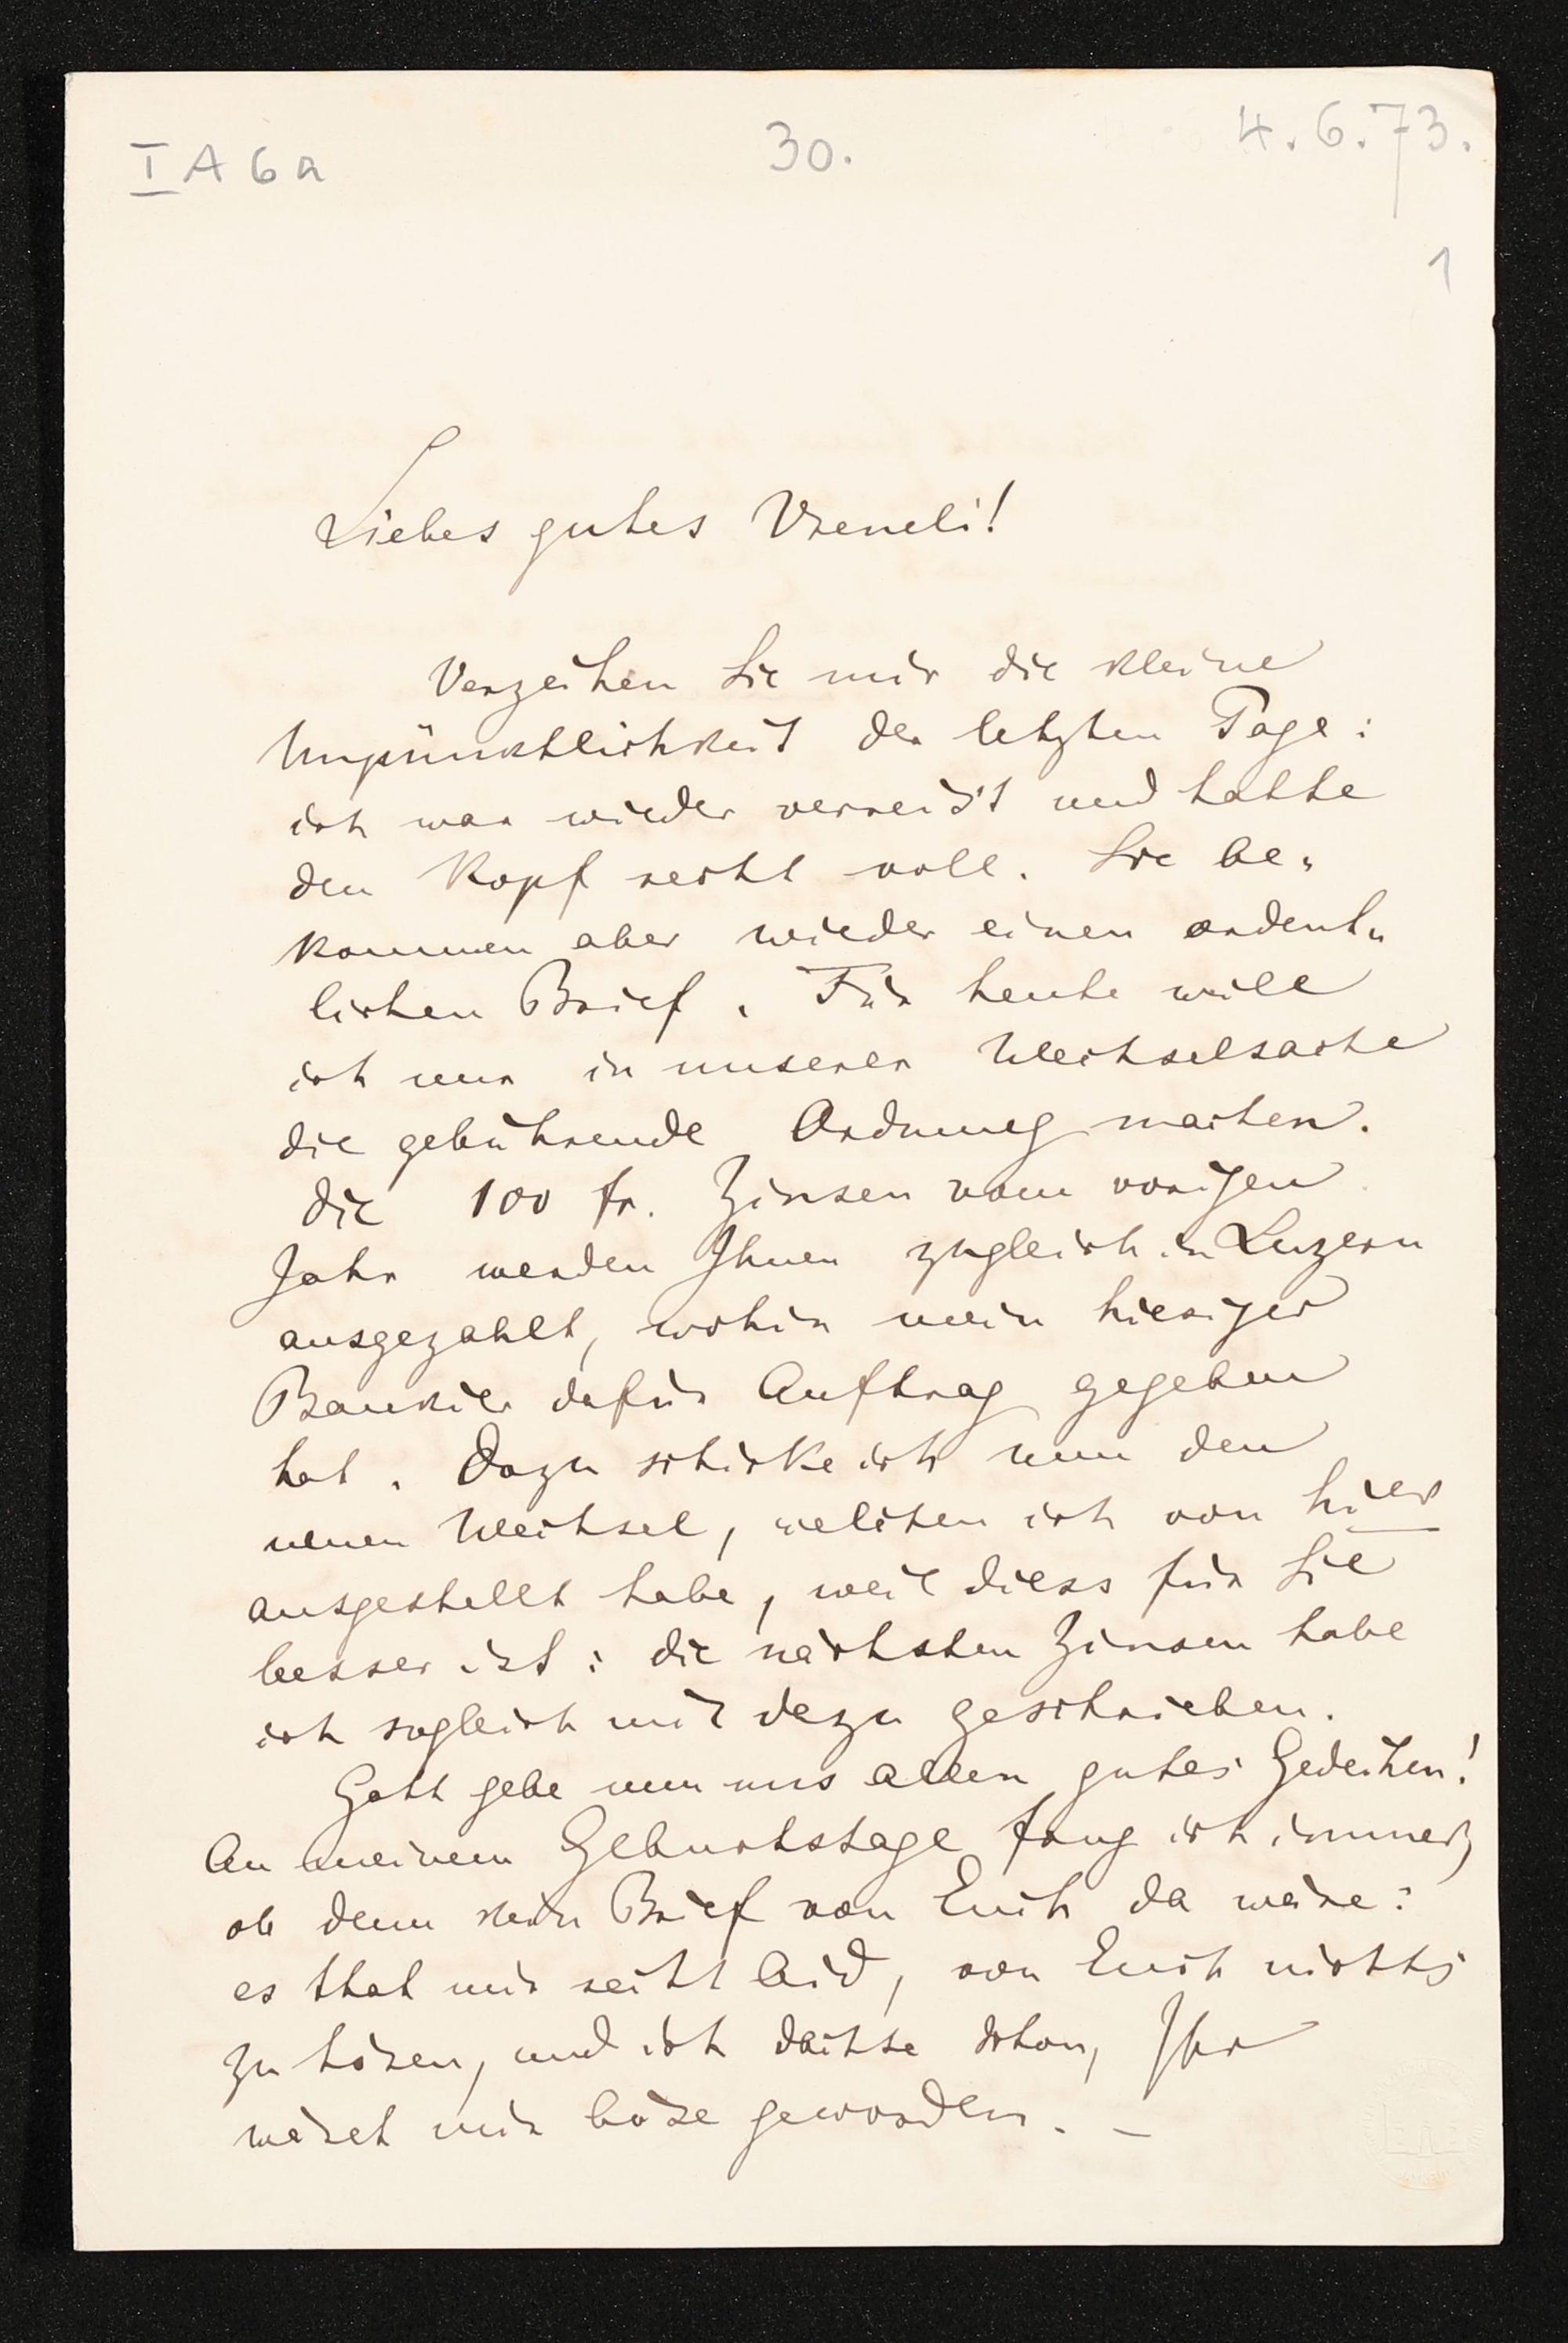 I A 6 a
30.
4. 6. 73.
1
Liebes gutes Vreneli!
Verzeihen Sie mir die kleine
Unpünktlichkeit der letzten Tage:
ich war wieder verreis't und hatte
den Kopf recht voll. Sie be-
kommen aber wieder einen ordent-
lichen Brief. Für heute will
ich nur in unserer Wechselsache
die gebührende Ordnung machen.
Die 100 fr. Zinsen vom vorigen
Jahr werden Ihnen zugleich in Luzern
ausgezahlt, wohin mein hiesiger
Bankier dafür Auftrag gegeben
hat. Dazu schicke ich nun den
neuen Wechsel, welchen ich von hier
ausgestellt habe, weil diess für Sie
besser ist: die nächsten Zinsen habe
ich sogleich mit dazu geschrieben.
Gott gebe nun uns allen gutes Gedeihen!
An meinem Geburtstage frug ich immer,
ob denn kein Brief von Euch da wäre:
es that mir recht leid, von Euch nichts
zu hören, und ich dachte schon, Ihr
wäret mir böse geworden. –